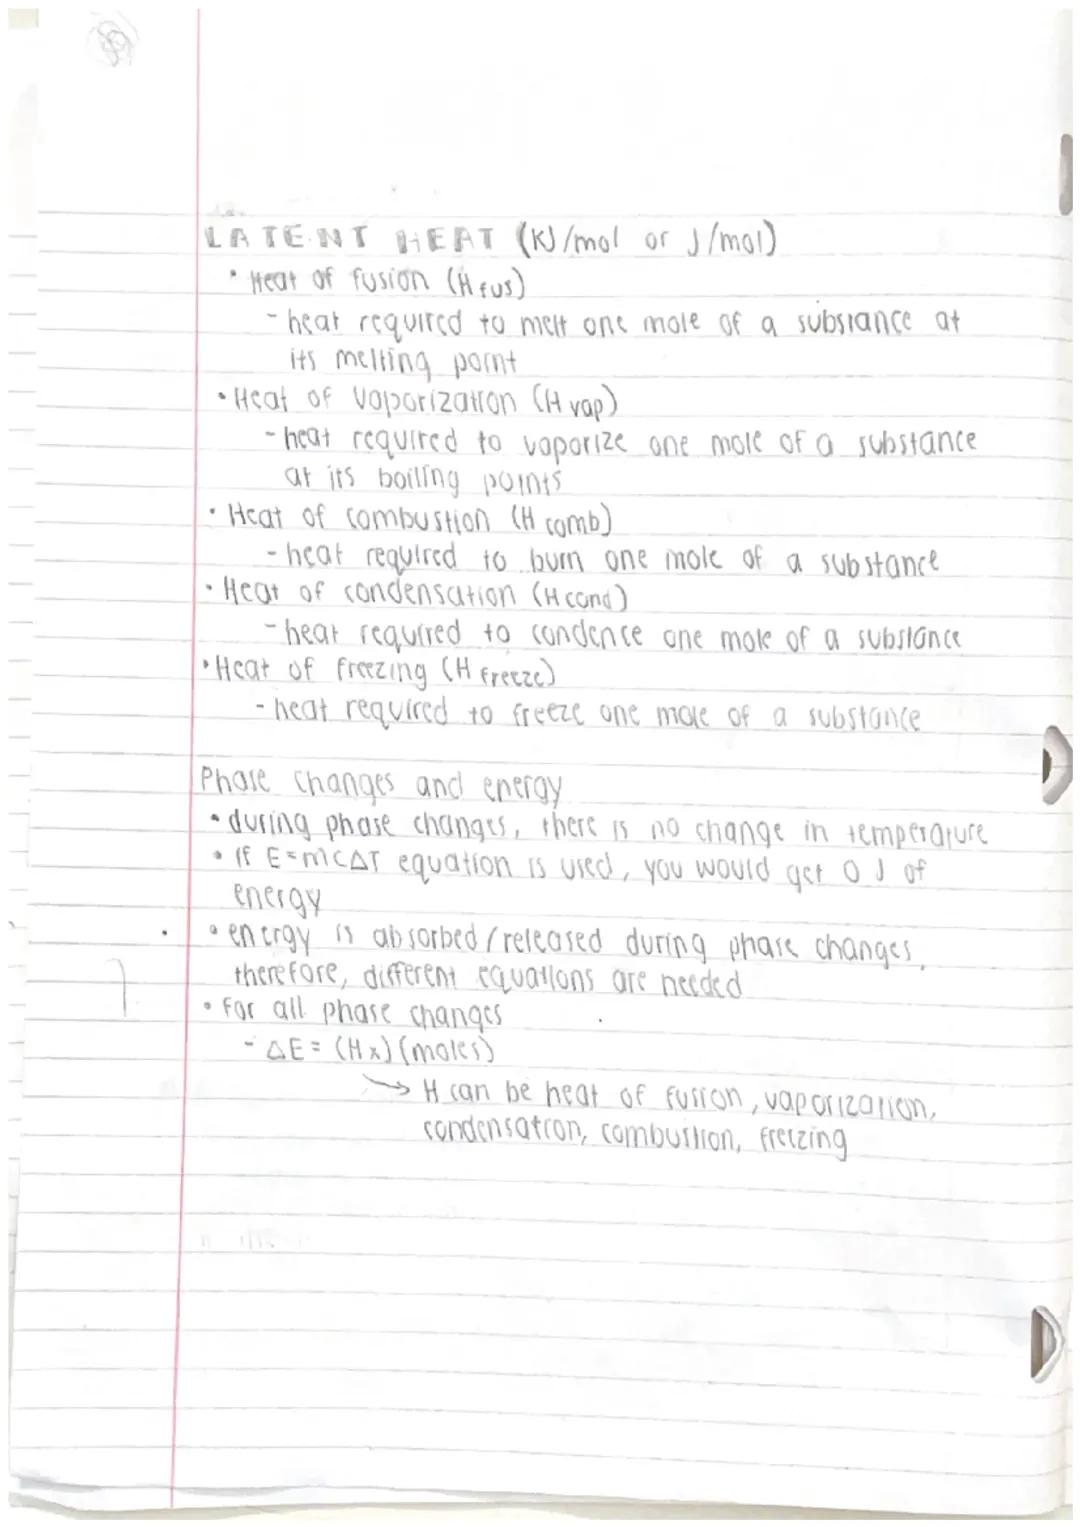 LATENT HEAT (KJ/mol or J/mol)
• Heat of fusion (H fus)
- heat required to melt one mole of a substance at
its melting point
• Heat of vaporization (H vap)
- heat required to vaporize one mole of a substance
at its boiling points
• Heat of combustion (H comb)
- heat required to burn one mole of a substance
• Heat of condensation (H cond)
- heat required to condence one mole of a substance
• Heat of freezing (H freeze)
- heat required to freeze one mole of a substance
Phase changes and energy
• during phase changes, there is no change in temperature
• If E=mC∆T equation is used, you would get 0 J of
energy
• energy is absorbed/released during phase changes,
therefore, different equations are needed
• For all phase changes
- ∆E = (Hx)(moles)
→ H can be heat of fusion, vaporization,
condensation, combustion, freezing